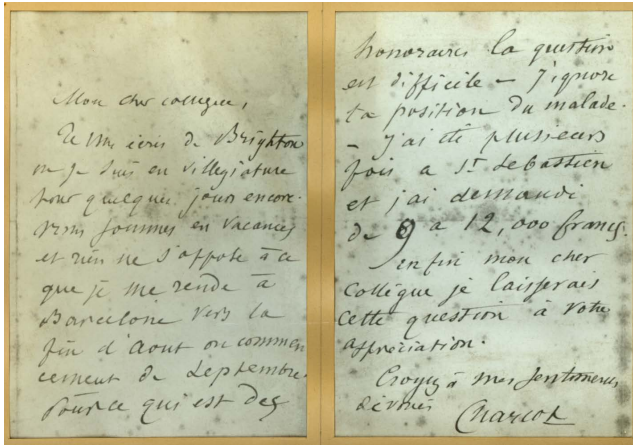 Mon cher collègue,
Je vous écris de Brighton
où je suis en villégiature
pour quelques jours encore.
Nous sommes en vacances
et rien ne s'oppose à ce
que je me rende à
Barcelone vers la
fin d'Aout ou commen
cement de Septembre.
Pour ce qui est des
honoraires la question
est difficile – J'ignore
la position du malade.
– J'ai été plusieurs
fois a St Sebastien
et j'ai demandé
de 9 a 12,000 francs.
enfin mon cher
Collègue je laisserais
cette question à votre
appréciation.
Croyez à mes sentiments
dévoués Charcot